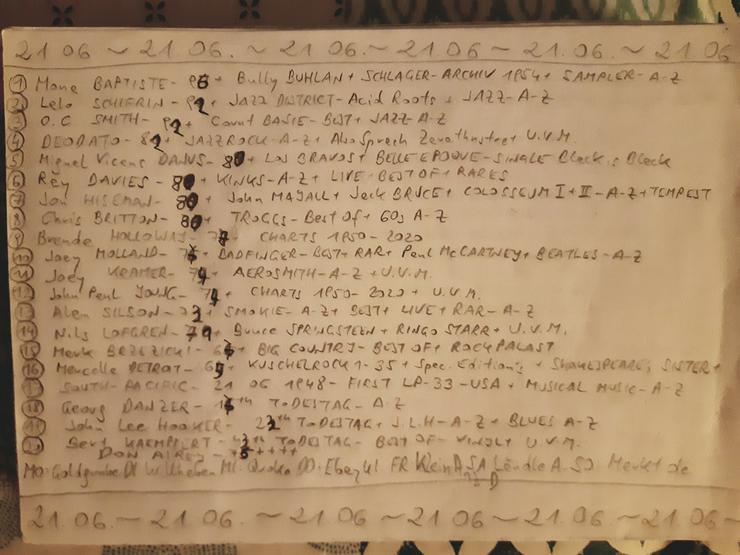 21.06. ~ 21.06. ~ 21.06. ~ 21.06. ~ 21.06. ~ 21.06
1 Mona BAPTISTE - 96 + Bully BUHLAN + SCHLAGER-ARCHIV 1954 + SAMPLER - A-Z
2 Lalo SCHIFRIN - 92 + JAZZ DISTRICT - Acid Roots + JAZZ-A-Z
3 O.C SMITH - 92 + Count BASIE - BEST + JAZZ A-Z
4 DEODATO - 82 + JAZZROCK - A-Z + Also Sprach Zarathustra + U.V.M.
5 Miguel Vicens DANUS - 80 + LOS BRAVOS + BELLE EPOQUE - SINGLE Black is Black
6 Ray DAVIES - 80 + KINKS - A-Z + LIVE - BEST OF + RARES
7 Jon HISEMAN - 80 + John MAYALL + Jack BRUCE + COLOSSEUM I + II - A-Z + TEMPEST
8 Chris BRITTON - 80 + TROGGS - Best Of + 60s A-Z
9 Brenda HOLLOWAY - 78 + CHARTS 1950-2020
10 Joey MOLLAND - + BADFINGER - BEST + RAR + Paul McCARTNEY + BEATLES - A-Z
11 Joey KRAMER - 74 + AEROSMITH - A-Z + U.V.M.
12 John Paul YOUNG - 74 + CHARTS 1950-2020 + U.V.M.
13 Alan SILSON - + SMOKIE - A-Z + BEST + LIVE + RAR - A-Z
14 Nils LOFGREN - + Bruce SPRINGSTEEN + RINGO STARR + U.V.M.
15 Mark BRZEZICKI - + BIG COUNTRY - BEST OF + ROCKPALAST
16 Marcella DETROIT - + KUSCHELROCK 1-35 + Spec. Edition's + SHAKESPEARE, SISTER +
17 SOUTH-PACIFIC - 21 06 1948 - FIRST LP-33-USA + MUSICAL MUSIC - A-Z
18 Georg DANZER - TODESTAG - A-Z
19 John Lee HOOKER - TODESTAG + J.L.H - A-Z + BLUES A-Z
20 Bert KAEMPFERT - TODESTAG - BEST OF - VINYL + U.V.M.
DON AIREY - ++++
MO: Goldgrube DI MI: Quoka DO: Ebay kl FR Klein A SA Ländle A. SO Markt de
21.06. ~ 21.06. ~ 21.06. ~ 21.06. ~ 21.06. ~ 21.06.